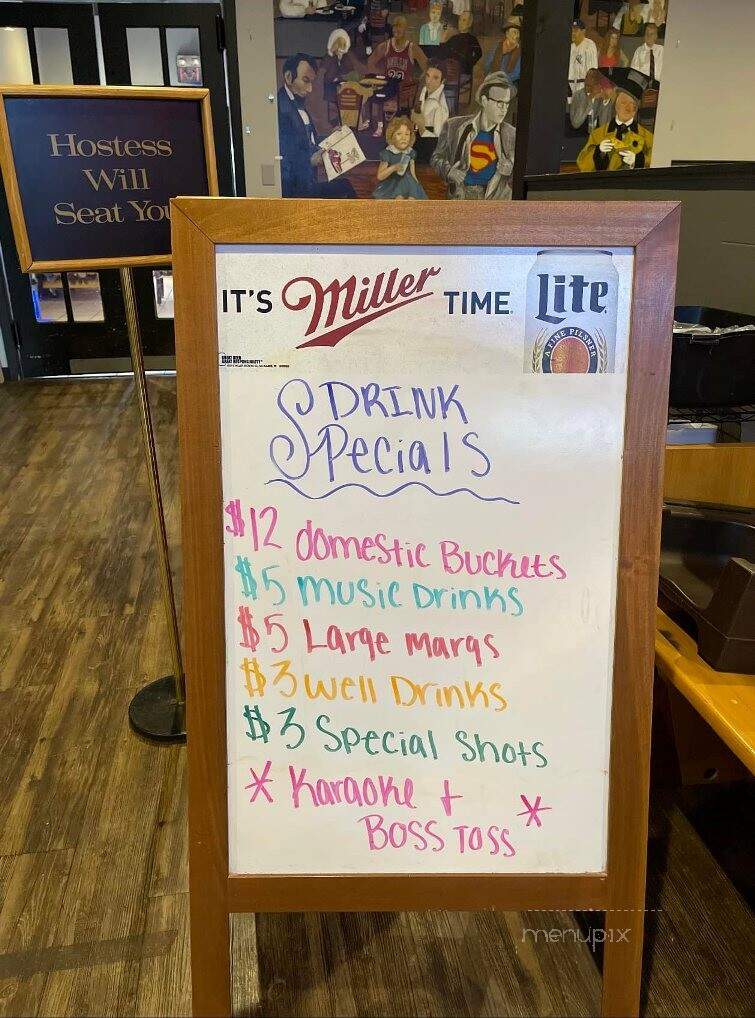 Hostess
Will
Seat You
IT'S Miller TIME
Lite
A FINE PILSNER
DRINK
Specials
$12 domestic Buckets
$5 music Drinks
$5 Large margs
$3 Well Drinks
$3 Special Shots
* Karaoke + *
Boss Toss
menupix